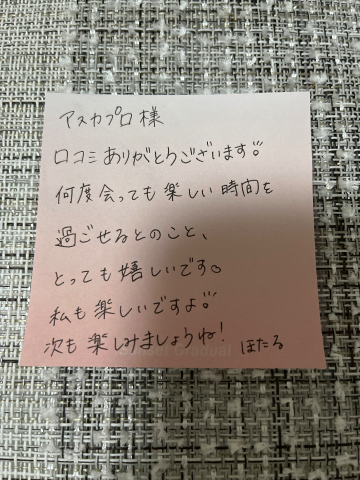 アスカプロ様
口コミありがとうございます!!
何度会っても楽しい時間を
過ごせるとのこと、
とっても嬉しいです。
私も楽しいですよ!!
次も楽しみましょうね!
ほたる